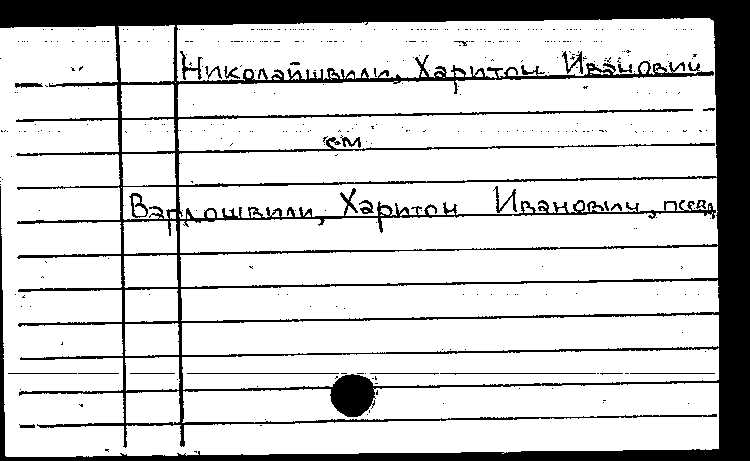 Николайшвили, Харитон Иванович
см
Вардошвили, Харитон Иванович, псевд.